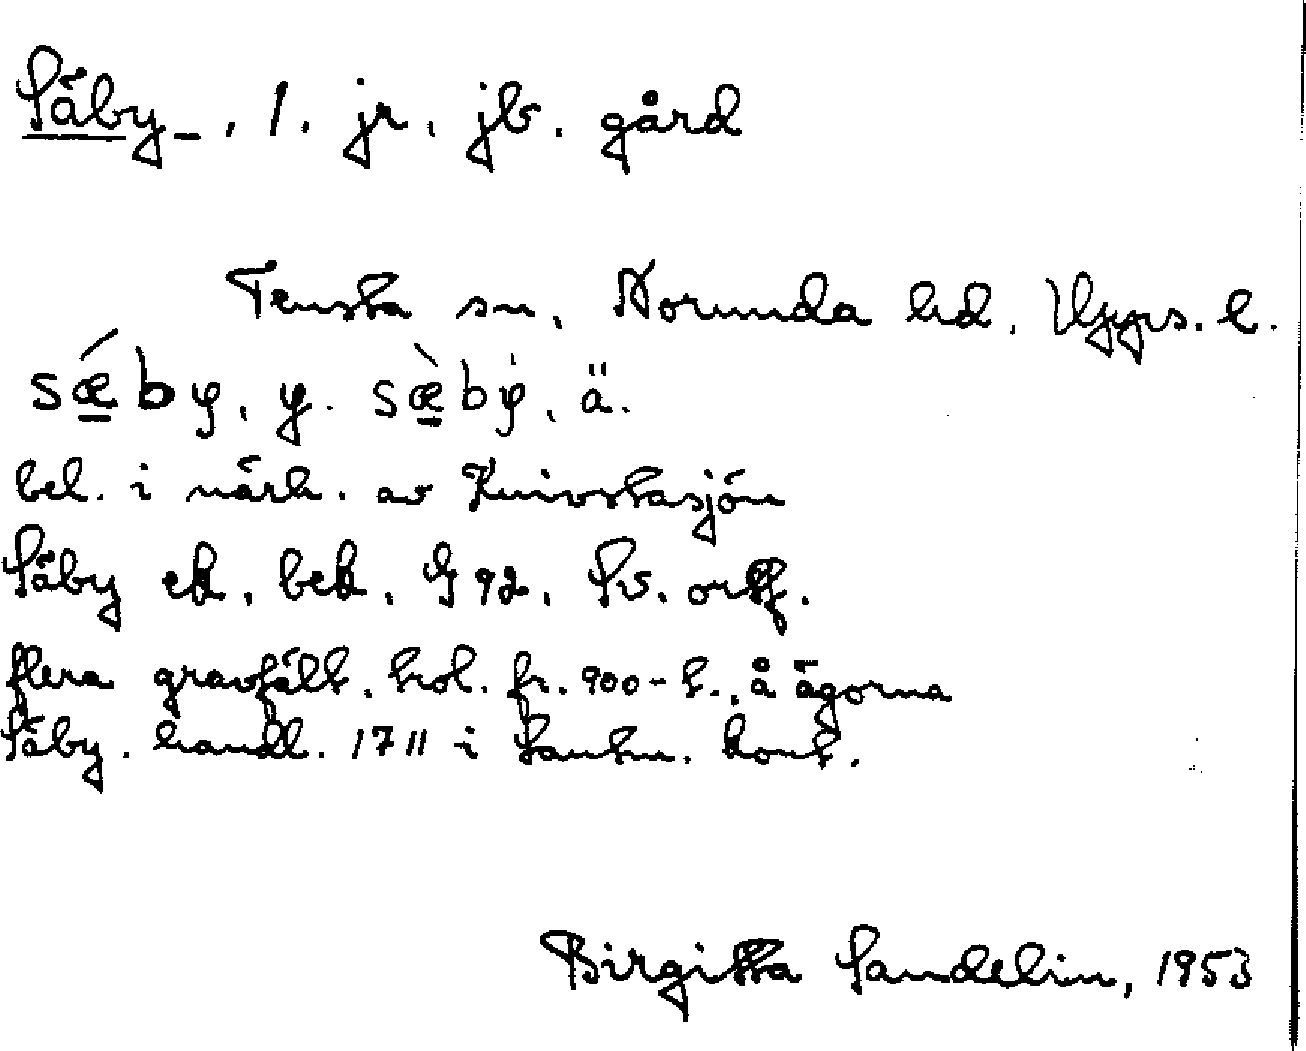 Säby, 1. jr. jb. gård
Tensta sn, Norunda hd. Upps. l.
sǽby, y. sæ̀bẏ, ä.
bel. i närh. av Knivstasjön
Säby ek. bek. G 92. Sv. ortf.
flera gravfält, trol. fr. 900-t., å ägorna
Säby. handl. 1711 i Lantm. kont.
Birgitta Sandelin, 1953